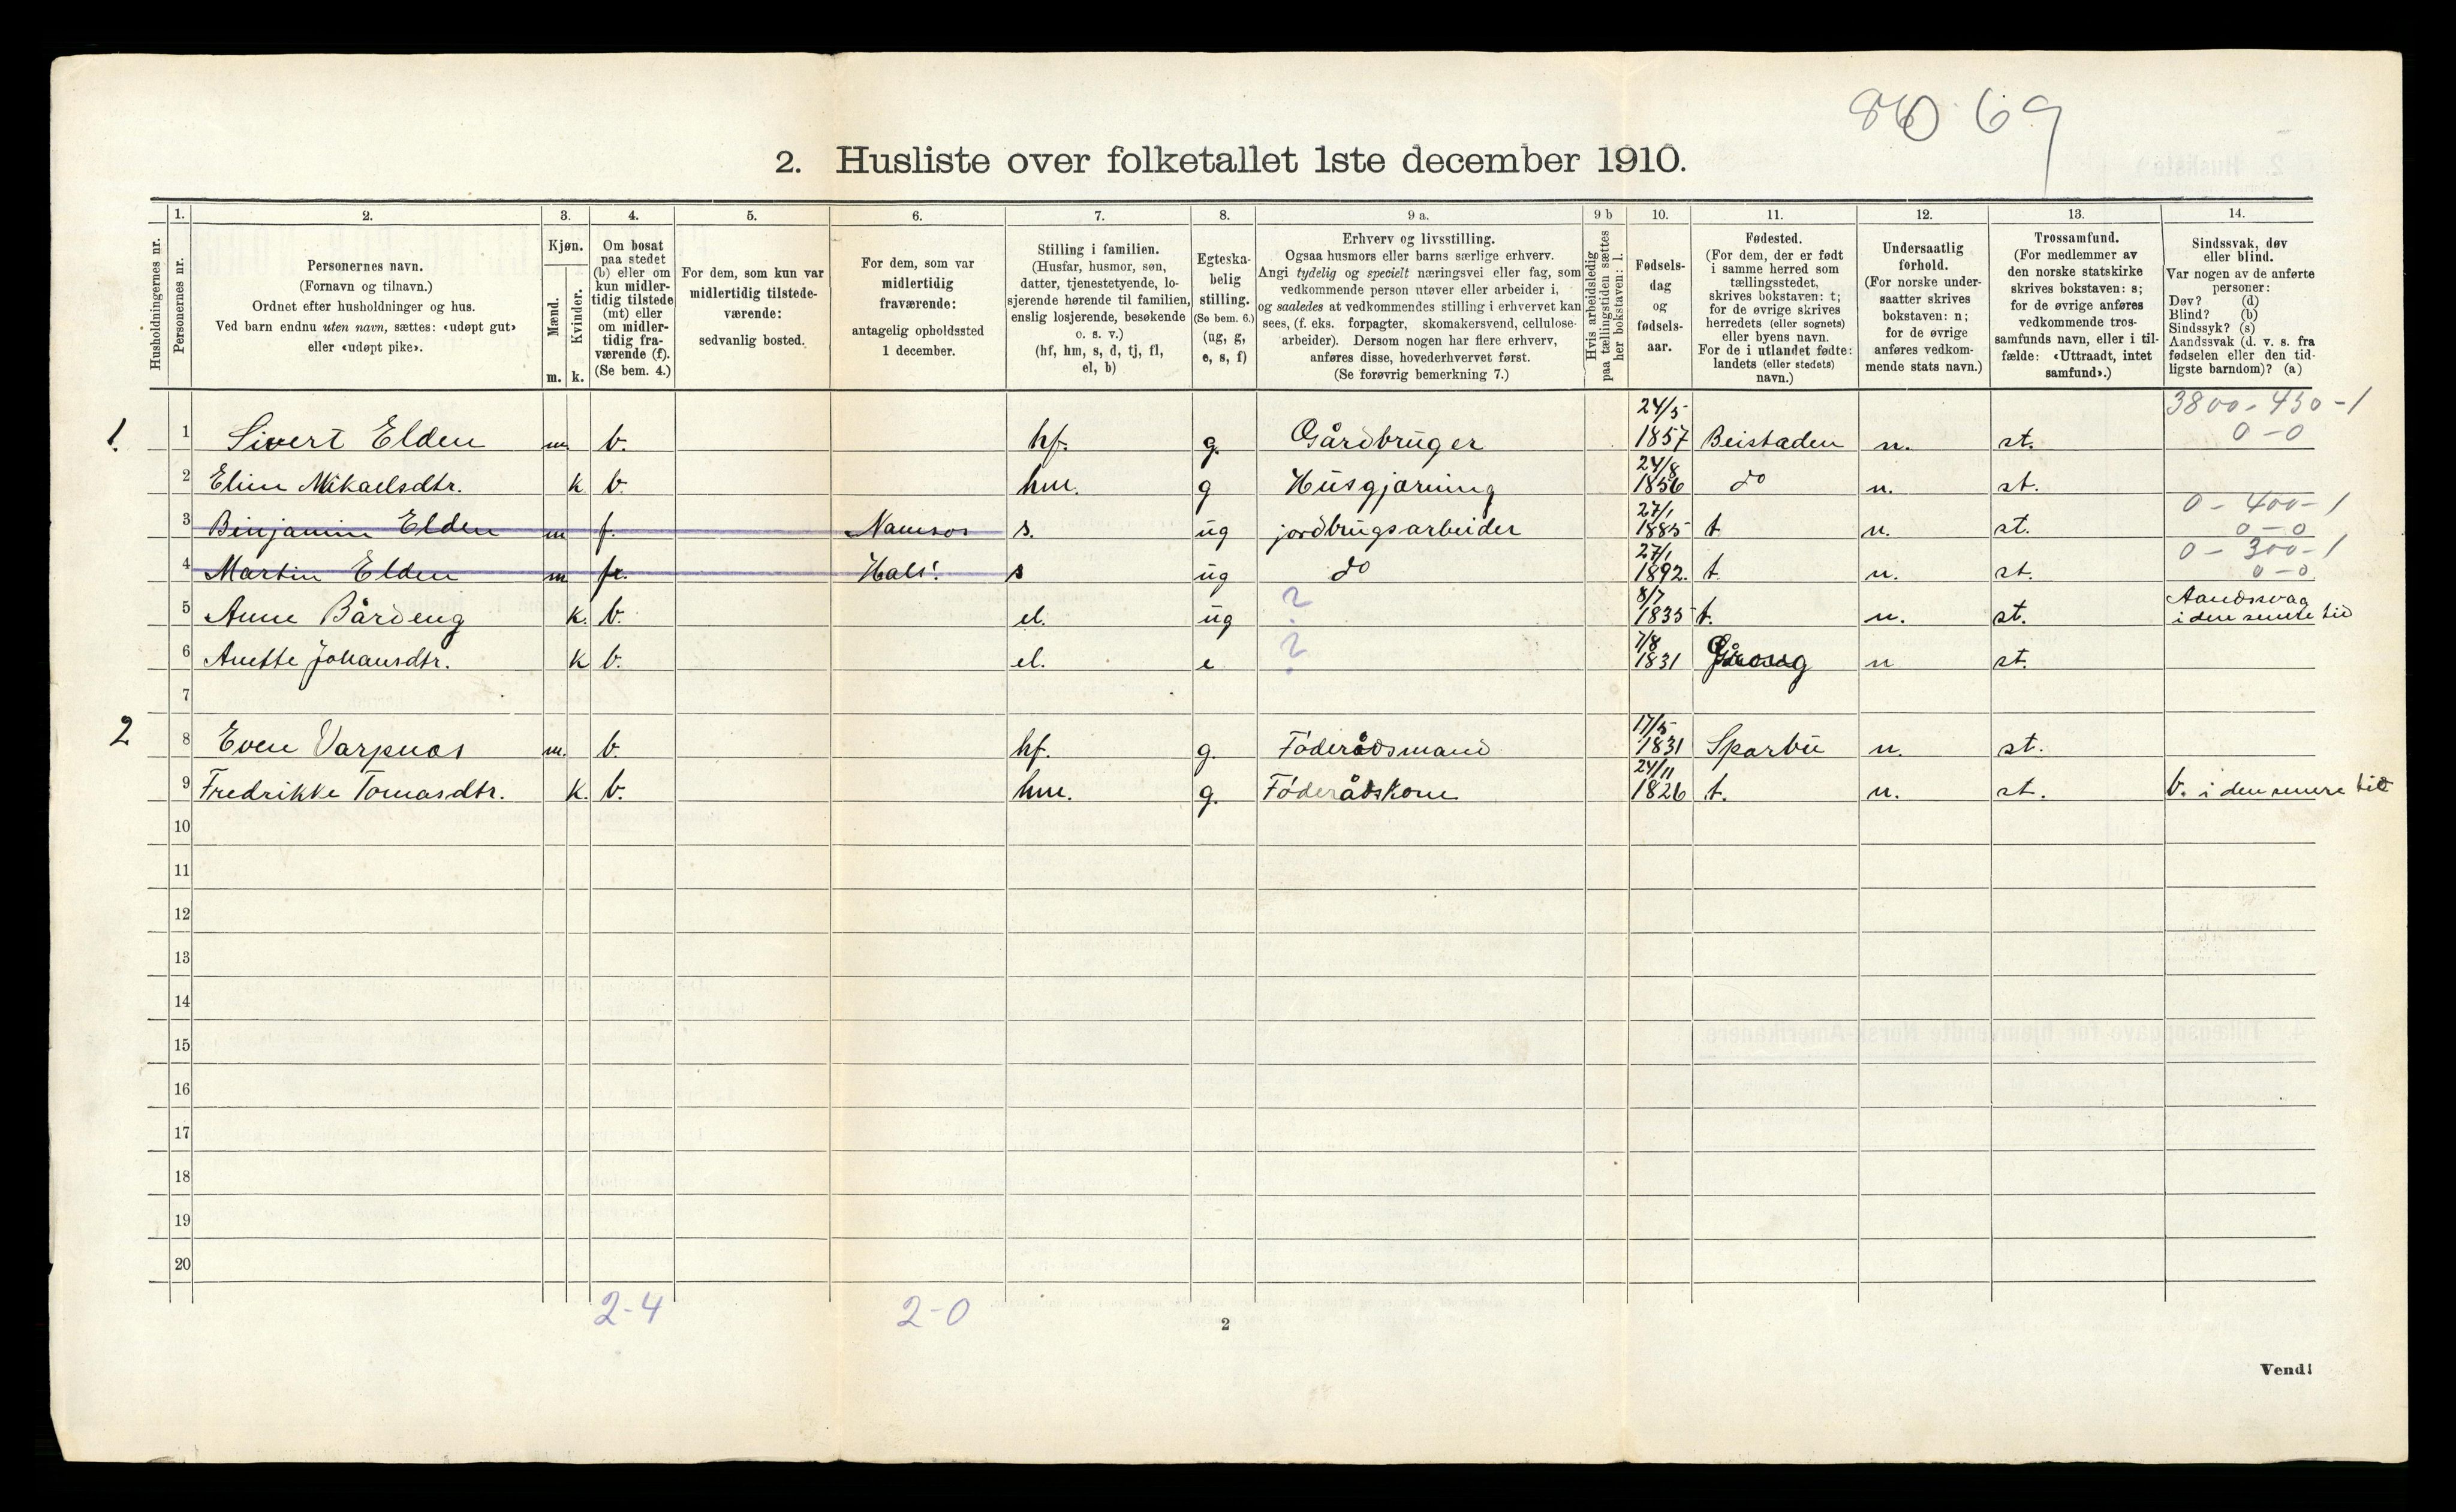 86 69
2. Husliste over folketallet 1ste december 1910.
Husholdningernes nr.
1. Personernes nr.
2. Personernes navn.
(Fornavn og tilnavn.)
Ordnet efter husholdninger og hus.
Ved barn endnu uten navn, sættes: «udøpt gut»
eller «udøpt pike».
3. Kjøn.
Mænd. m.
Kvinder. k.
4. Om bosat
paa stedet
(b) eller om
kun midler-
tidig tilstede
(mt) eller
om midler-
tidig fra-
værende (f).
(Se bem. 4.)
5. For dem, som kun var
midlertidig tilstede-
værende:
sedvanlig bosted.
6. For dem, som var
midlertidig
fraværende:
antagelig opholdssted
1 december.
7. Stilling i familien.
(Husfar, husmor, søn,
datter, tjenestetyende, lo-
sjerende hørende til familien,
enslig losjerende, besøkende
o. s. v.)
(hf, hm, s, d, tj, fl,
el, b)
8. Egteska-
belig
stilling.
(Se bem. 6.)
(ug, g,
e, s, f)
9 a. Erhverv og livsstilling.
Ogsaa husmors eller barns særlige erhverv.
Angi tydelig og specielt næringsvei eller fag, som
vedkommende person utøver eller arbeider i,
og saaledes at vedkommendes stilling i erhvervet kan
sees, (f. eks. forpagter, skomakersvend, cellulose-
arbeider). Dersom nogen har flere erhverv,
anføres disse, hovederhvervet først.
(Se forøvrig bemerkning 7.)
9 b Hvis arbeidsledig
paa tællingstiden sættes
her bokstaven: l.
10. Fødsels-
dag
og
fødsels-
aar.
11. Fødested.
(For dem, der er født
i samme herred som
tællingsstedet,
skrives bokstaven: t;
for de øvrige skrives
herredets (eller sognets)
eller byens navn.
For de i utlandet fødte:
landets (eller stedets)
navn.)
12. Undersaatlig
forhold.
(For norske under-
saatter skrives
bokstaven: n;
for de øvrige
anføres vedkom-
mende stats navn.)
13. Trossamfund.
(For medlemmer av
den norske statskirke
skrives bokstaven: s;
for de øvrige anføres
vedkommende tros-
samfunds navn, eller i til-
fælde: «Uttraadt, intet
samfund».)
14. Sindssvak, døv
eller blind.
Var nogen av de anførte
personer:
Døv? (d)
Blind? (b)
Sindssyk? (s)
Aandssvak (d. v. s. fra
fødselen eller den tid-
ligste barndom)? (a)
1. 1 Sivert Elden m. b. hf. g. Gårdbruger 24/5 1857 Beistaden n. st. 3800-430-1 0-0
2 Eline Mikaelsdtr. k b. hm. g Husgjærning 24/8 1856 do n. st.
3 Binjamin Elden m f. Namsos s. ug jordbrugsarbeider 27/1 1885 t n. st. 0-400-1 0-0
4 Martin Elden m fr. Hals! s ug do 27/1 1892. t. n. st. 0-300-1 0-0
5 Anne Bårdeng k. b. el. ug ? 8/7 1835 t. n. st. Aandsvag i den senere tid
6 Anette Johansdtr. k b. el. e ? 7/8 1831 Grong n st.
7
2 8 Even Varpnes m. b. hf. g. Föderådsmand 17/5 1831 Sparbu n. st.
9 Fredrikke Tomasdtr. k. b. hm. g. Föderådskone 24/11 1826 t. n. st. b. i den senere tid
10
11
12
13
14
15
16
17
18
19
20
2-4 2-0
2
Vend!